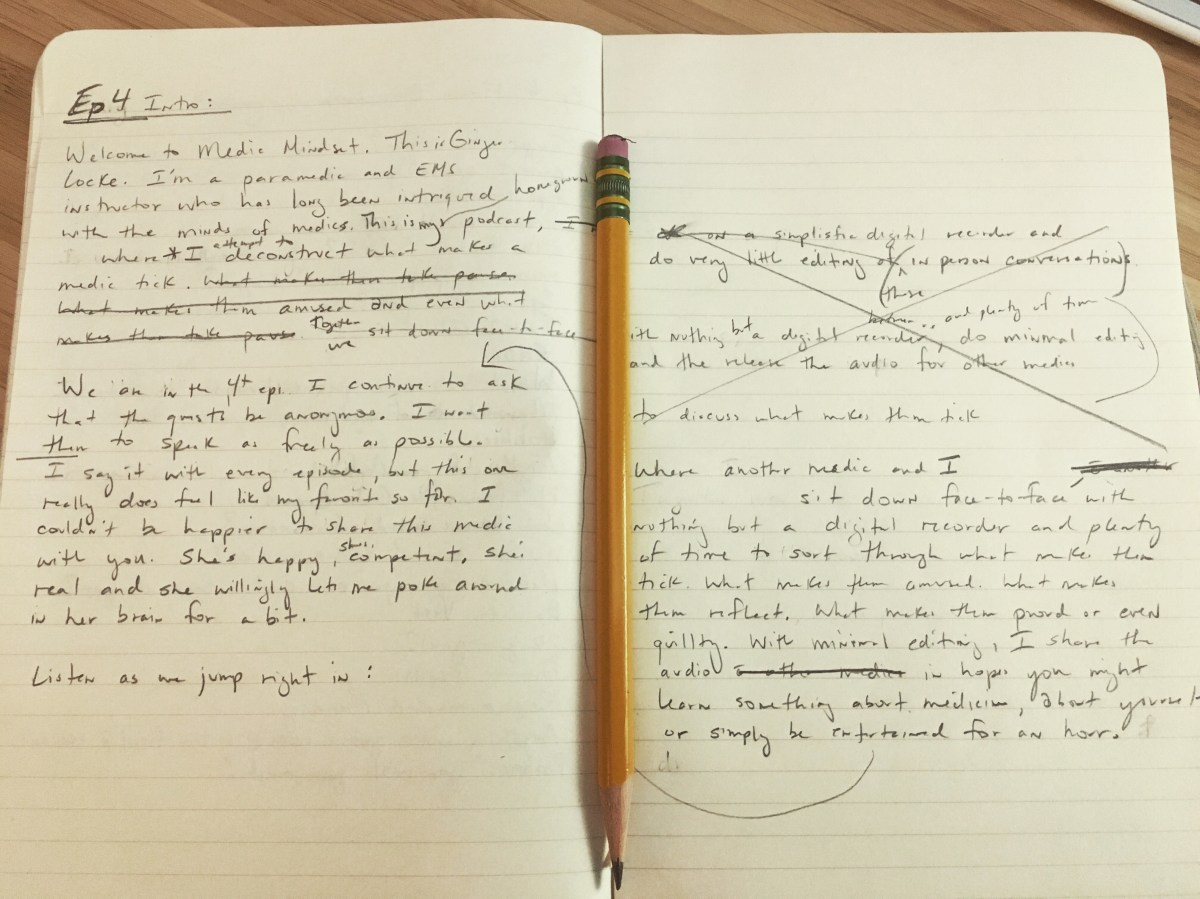 Ep. 4 Intro:
Welcome to Medic Mindset. This is Ginger
Locke. I'm a paramedic and EMS
instructor who has long been intrigued homegrown
with the minds of medics. This is my podcast, I
where * I attempt to deconstruct what makes a
medic tick. What makes them take pause.
What makes them amused and even what
makes them take pause. Together we sit down face-to-face
We are in the 4th epi. I continue to ask
that the guests be anonymous. I want
them to speak as freely as possible.
I say it with every episode, but this one
really does feel like my favorite so far. I
couldn't be happier to share this medic
with you. She's happy, she's competent, she's
real and she willingly lets me poke around
in her brain for a bit.
Listen as we jump right in:
on a simplistic digital recorder and
do very little editing of these in person conversations.
between .. and plenty of time
ith nothing but a digital recorder, do minimal editing
and the release the audio for other medics
to discuss what makes them tick
Where another medic and I
sit down face-to-face with
nothing but a digital recorder and plenty
of time to sort through what makes them
tick. What makes them amused. What makes
them reflect. What makes them proud or even
guilty. With minimal editing, I share the
audio in hopes you might
learn something about medicine, about yourself
or simply be entertained for an hour.